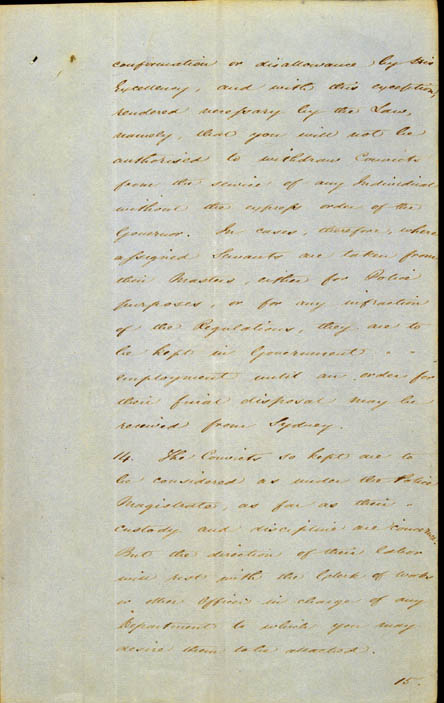 confirmation or disallowance by His
Excellency, and with this exception,
rendered necessary by the Law,
namely, that you will not be
authorised to withdraw Convicts
from the service of any Individual
without the express order of the
Governor. In cases, therefore, where
assigned Servants are taken from
their Masters, either for Police
purposes, or for any infraction
of the Regulations, they are to
be kept in Government
employment until an order for
their final disposal may be
received from Sydney.
14. The Convicts so kept are to
be considered as under the Police
Magistrate, as far as their
custody and discipline are concerned.
But the direction of their labor
will rest with the Clerk of Works
or other Officer in charge of any
Department to which you may
desire them to be attached.
15.